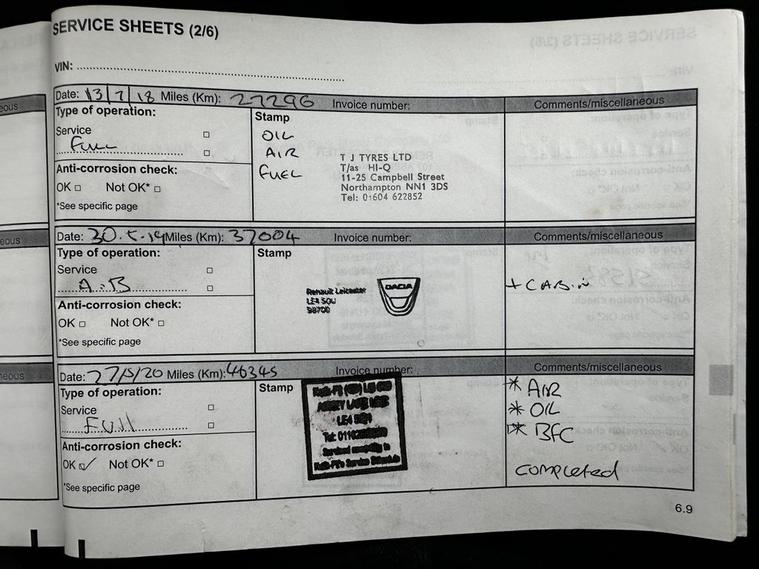 SERVICE SHEETS (2/6)
VIN:
Date: 13/7/18 Miles (Km): 27296 Invoice number: Comments/miscellaneous
Type of operation: Stamp
Service OIL
Full AIR
FUEL
T J TYRES LTD
T/as HI-Q
11-25 Campbell Street
Northampton NN1 3DS
Tel: 01604 622852
Anti-corrosion check:
OK Not OK*
*See specific page
Date: 30.5.19 Miles (Km): 37004 Invoice number: Comments/miscellaneous
Type of operation: Stamp
Service
A-B
Renault Leicester
LE4
DACIA
+ CABIN
Anti-corrosion check:
OK Not OK*
*See specific page
Date: 27/5/20 Miles (Km): 46345 Invoice number: Comments/miscellaneous
Type of operation: Stamp
Service
Full
ABBEY LANE
LE4
Tel:
* AIR
* OIL
* BFC
completed
Anti-corrosion check:
OK ✓ Not OK*
*See specific page
6.9